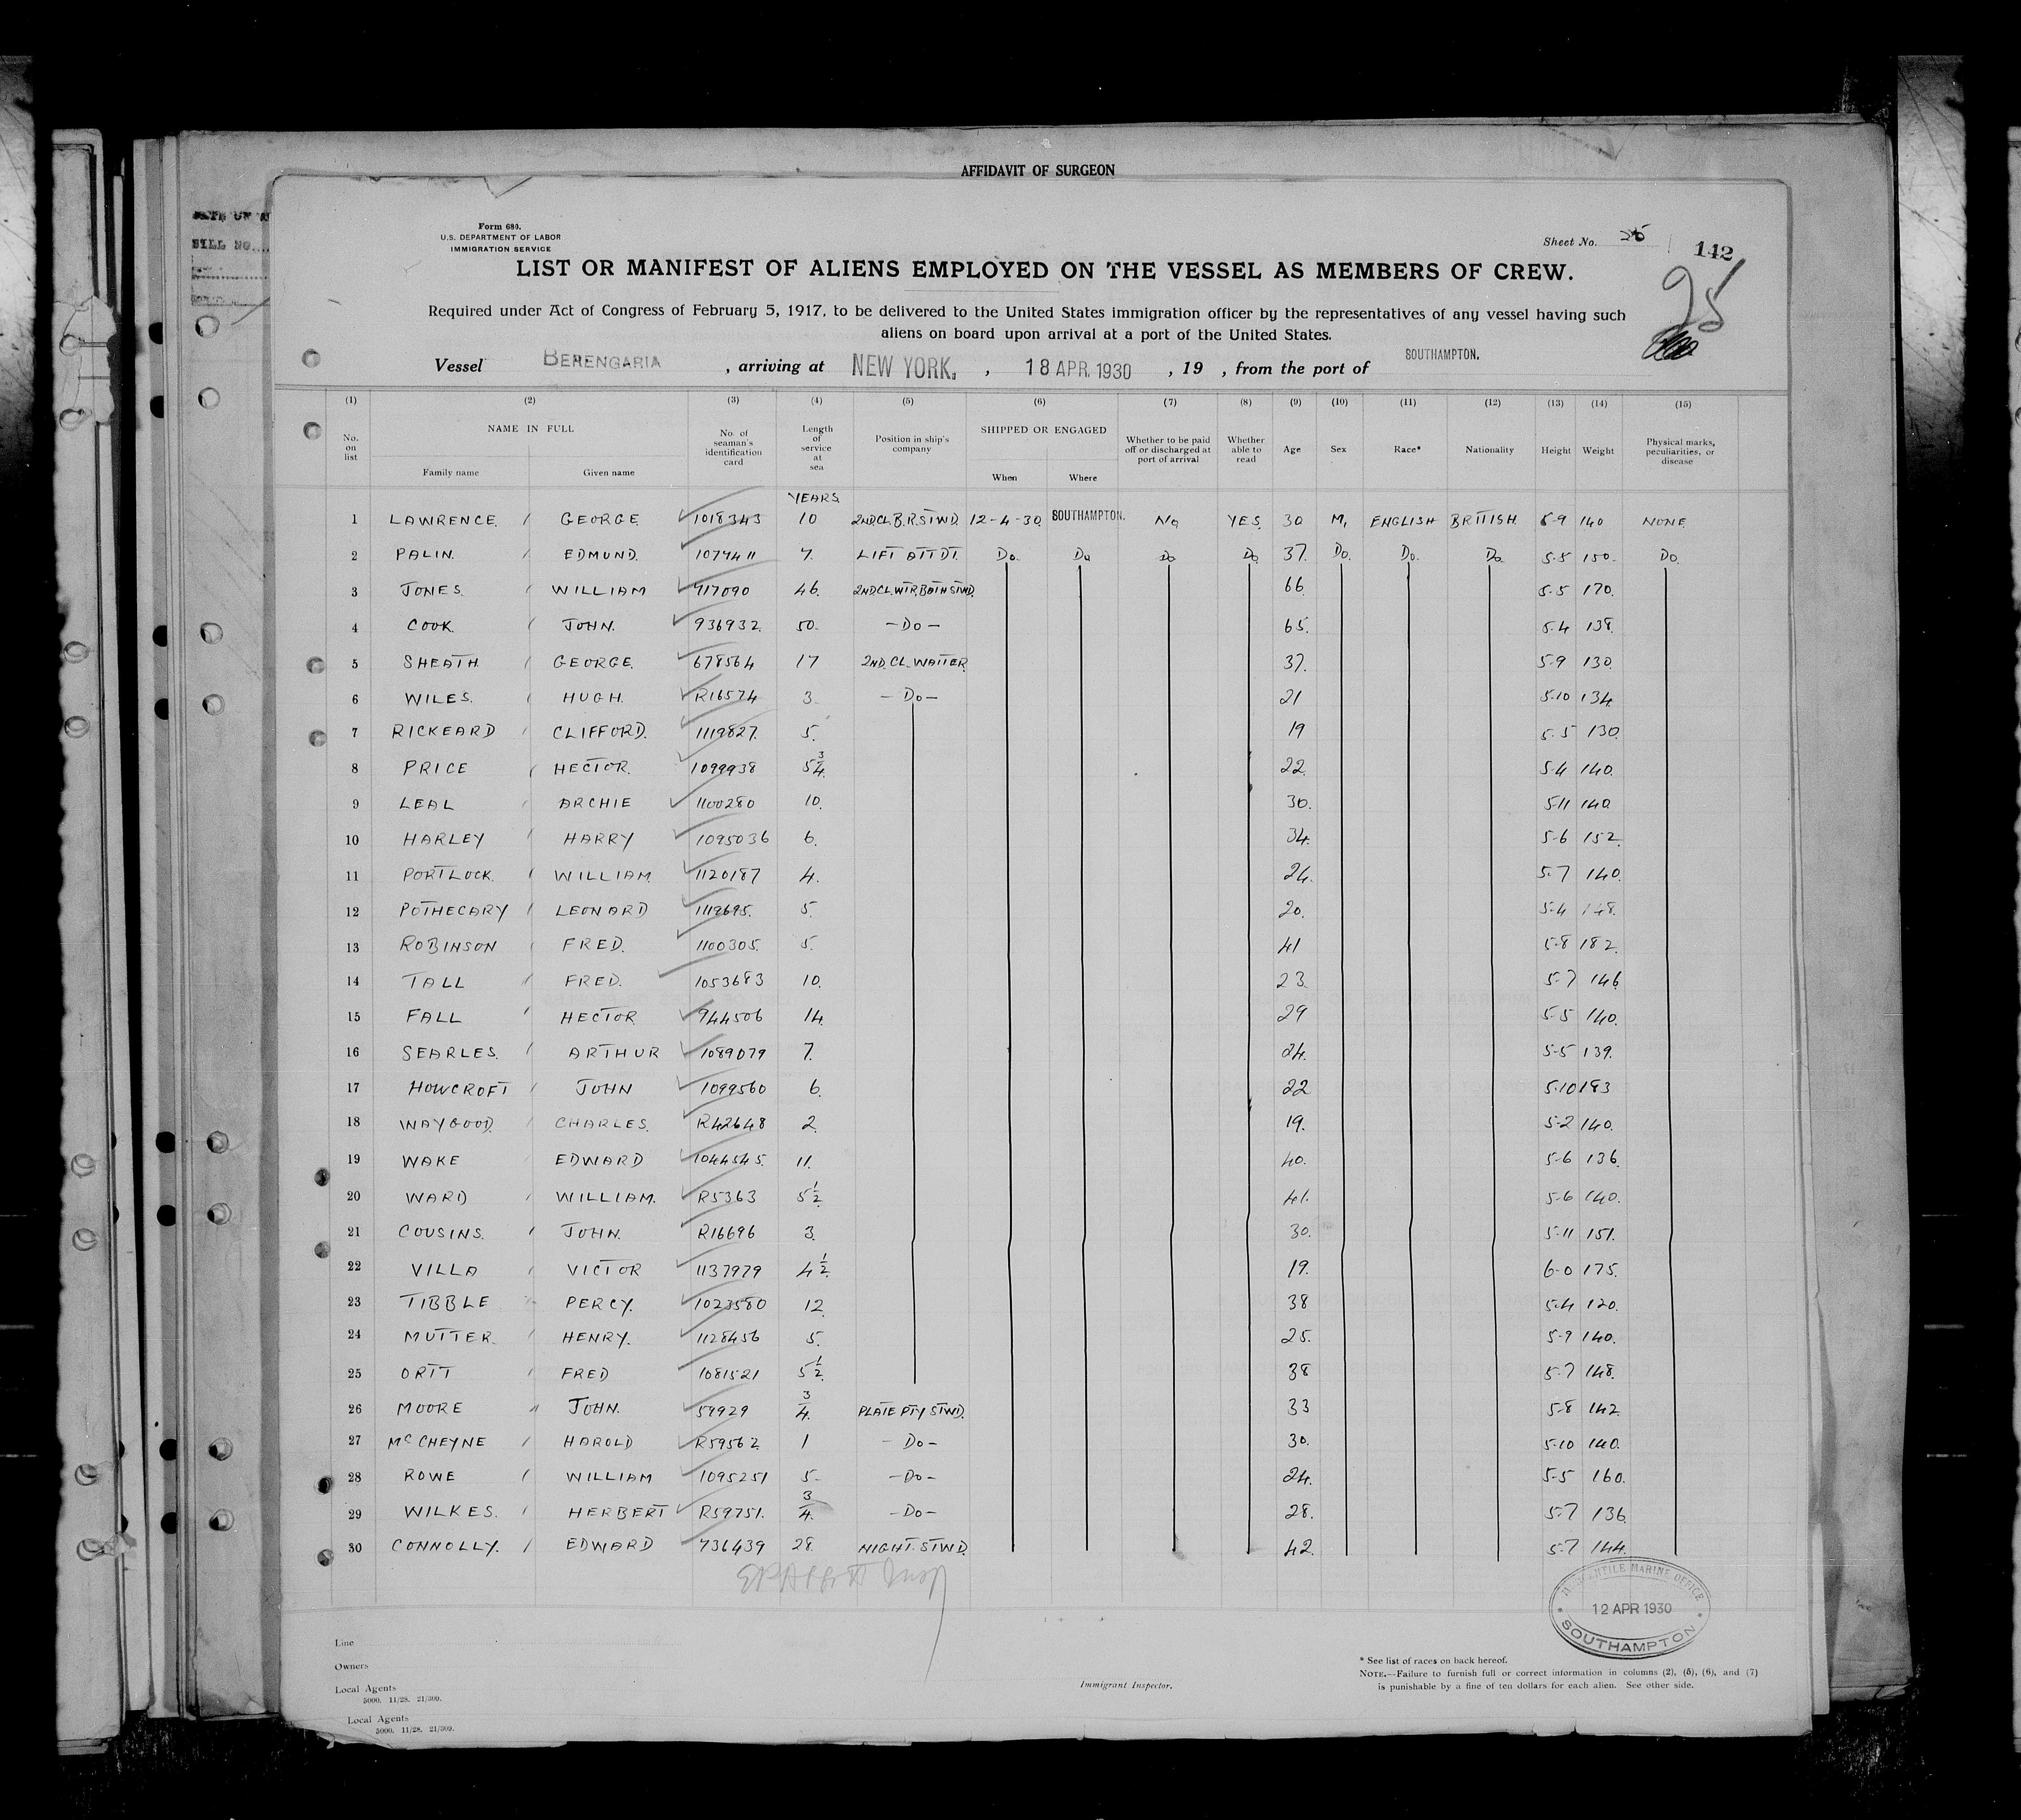 AFFIDAVIT OF SURGEON
Form 680.
U.S. DEPARTMENT OF LABOR
IMMIGRATION SERVICE
Sheet No.
142
25
LIST OR MANIFEST OF ALIENS EMPLOYED ON THE VESSEL AS MEMBERS OF CREW.
Required under Act of Congress of February 5, 1917, to be delivered to the United States immigration officer by the representatives of any vessel having such
aliens on board upon arrival at a port of the United States.
Vessel BERENGARIA , arriving at NEW YORK. , 18 APR. 1930 , 19 , from the port of SOUTHAMPTON.
(1) (2) (3) (4) (5) (6) (7) (8) (9) (10) (11) (12) (13) (14) (15)
No. on list NAME IN FULL Family name Given name No. of seaman's identification card Length of service at sea Position in ship's company SHIPPED OR ENGAGED When Where Whether to be paid off or discharged at port of arrival Whether able to read Age Sex Race* Nationality Height Weight Physical marks, peculiarities, or disease
YEARS
1 LAWRENCE / GEORGE 1018343 10 2ND.CL.B.R.STWD. 12-4-30 SOUTHAMPTON. No YES. 30 M. ENGLISH BRITISH 5-9 140 NONE
2 PALIN. / EDMUND. 1079411 7. LIFT ATTDT. Do. Do Do Do 37. Do. Do. Do 5-5 150. Do.
3 JONES. / WILLIAM 917090 46. 2ND.CL.WTR.BATH STWD. 66 5-5 170.
4 COOK. / JOHN. 936932. 50. -Do- 65. 5-4 138.
5 SHEATH / GEORGE. 678564 17 2ND.CL.WAITER 37. 5-9 130.
6 WILES. / HUGH. R16574 3. -Do- 21 5-10 134
7 RICKEARD / CLIFFORD. 1119827. 5. 19 5-5 130.
8 PRICE / HECTOR. 1099938 5 3/4 22. 5-4 140.
9 LEAL / ARCHIE 1100280 10. 30. 5-11 140
10 HARLEY / HARRY 1095036 6. 34. 5-6 152.
11 PORTLOCK. / WILLIAM. 1120187 4. 24. 5-7 140.
12 POTHECARY / LEONARD 1119695. 5. 20. 5-4 148.
13 ROBINSON / FRED. 1100305. 5. 41 5-8 182.
14 TALL / FRED. 1053683 10. 23. 5-7 146
15 FALL / HECTOR 944506 14. 29 5-5 140.
16 SEARLES. / ARTHUR 1089079 7. 24. 5-5 139.
17 HOWCROFT / JOHN 1099560 6. 22 5-10 183
18 WAYGOOD. / CHARLES. R42648 2. 19. 5-2 140.
19 WAKE EDWARD 1044545. 11. 40. 5-6 136.
20 WARD / WILLIAM. R5363 5 1/2 41. 5-6 140.
21 COUSINS. / JOHN. R16696 3. 30. 5-11 151.
22 VILLA / VICTOR 1137979 4 1/2 19. 6-0 175.
23 TIBBLE PERCY. 1023580 12. 38 5-4 120.
24 MUTTER. / HENRY. 1128456 5. 25. 5-9 140.
25 ORTT / FRED 1081521 5 1/2 38 5-7 148.
26 MOORE JOHN. 59929 3/4. PLATE PTY STWD. 33 5-8 142
27 McCHEYNE / HAROLD R59562 1 -Do- 30. 5-10 140.
28 ROWE / WILLIAM 1095251 5- -Do- 24. 5-5 160.
29 WILKES. / HERBERT R59751. 3/4. -Do- 28. 5-7 136
30 CONNOLLY. / EDWARD 736439 28. NIGHT.STWD. 42. 5-7 144.
MERCANTILE MARINE OFFICE
12 APR 1930
SOUTHAMPTON
Line
Owners
Local Agents
5000. 11/28. 21/309.
Immigrant Inspector.
* See list of races on back hereof.
NOTE.—Failure to furnish full or correct information in columns (2), (5), (6), and (7)
is punishable by a fine of ten dollars for each alien. See other side.
Local Agents
5000. 11/28. 21/309.